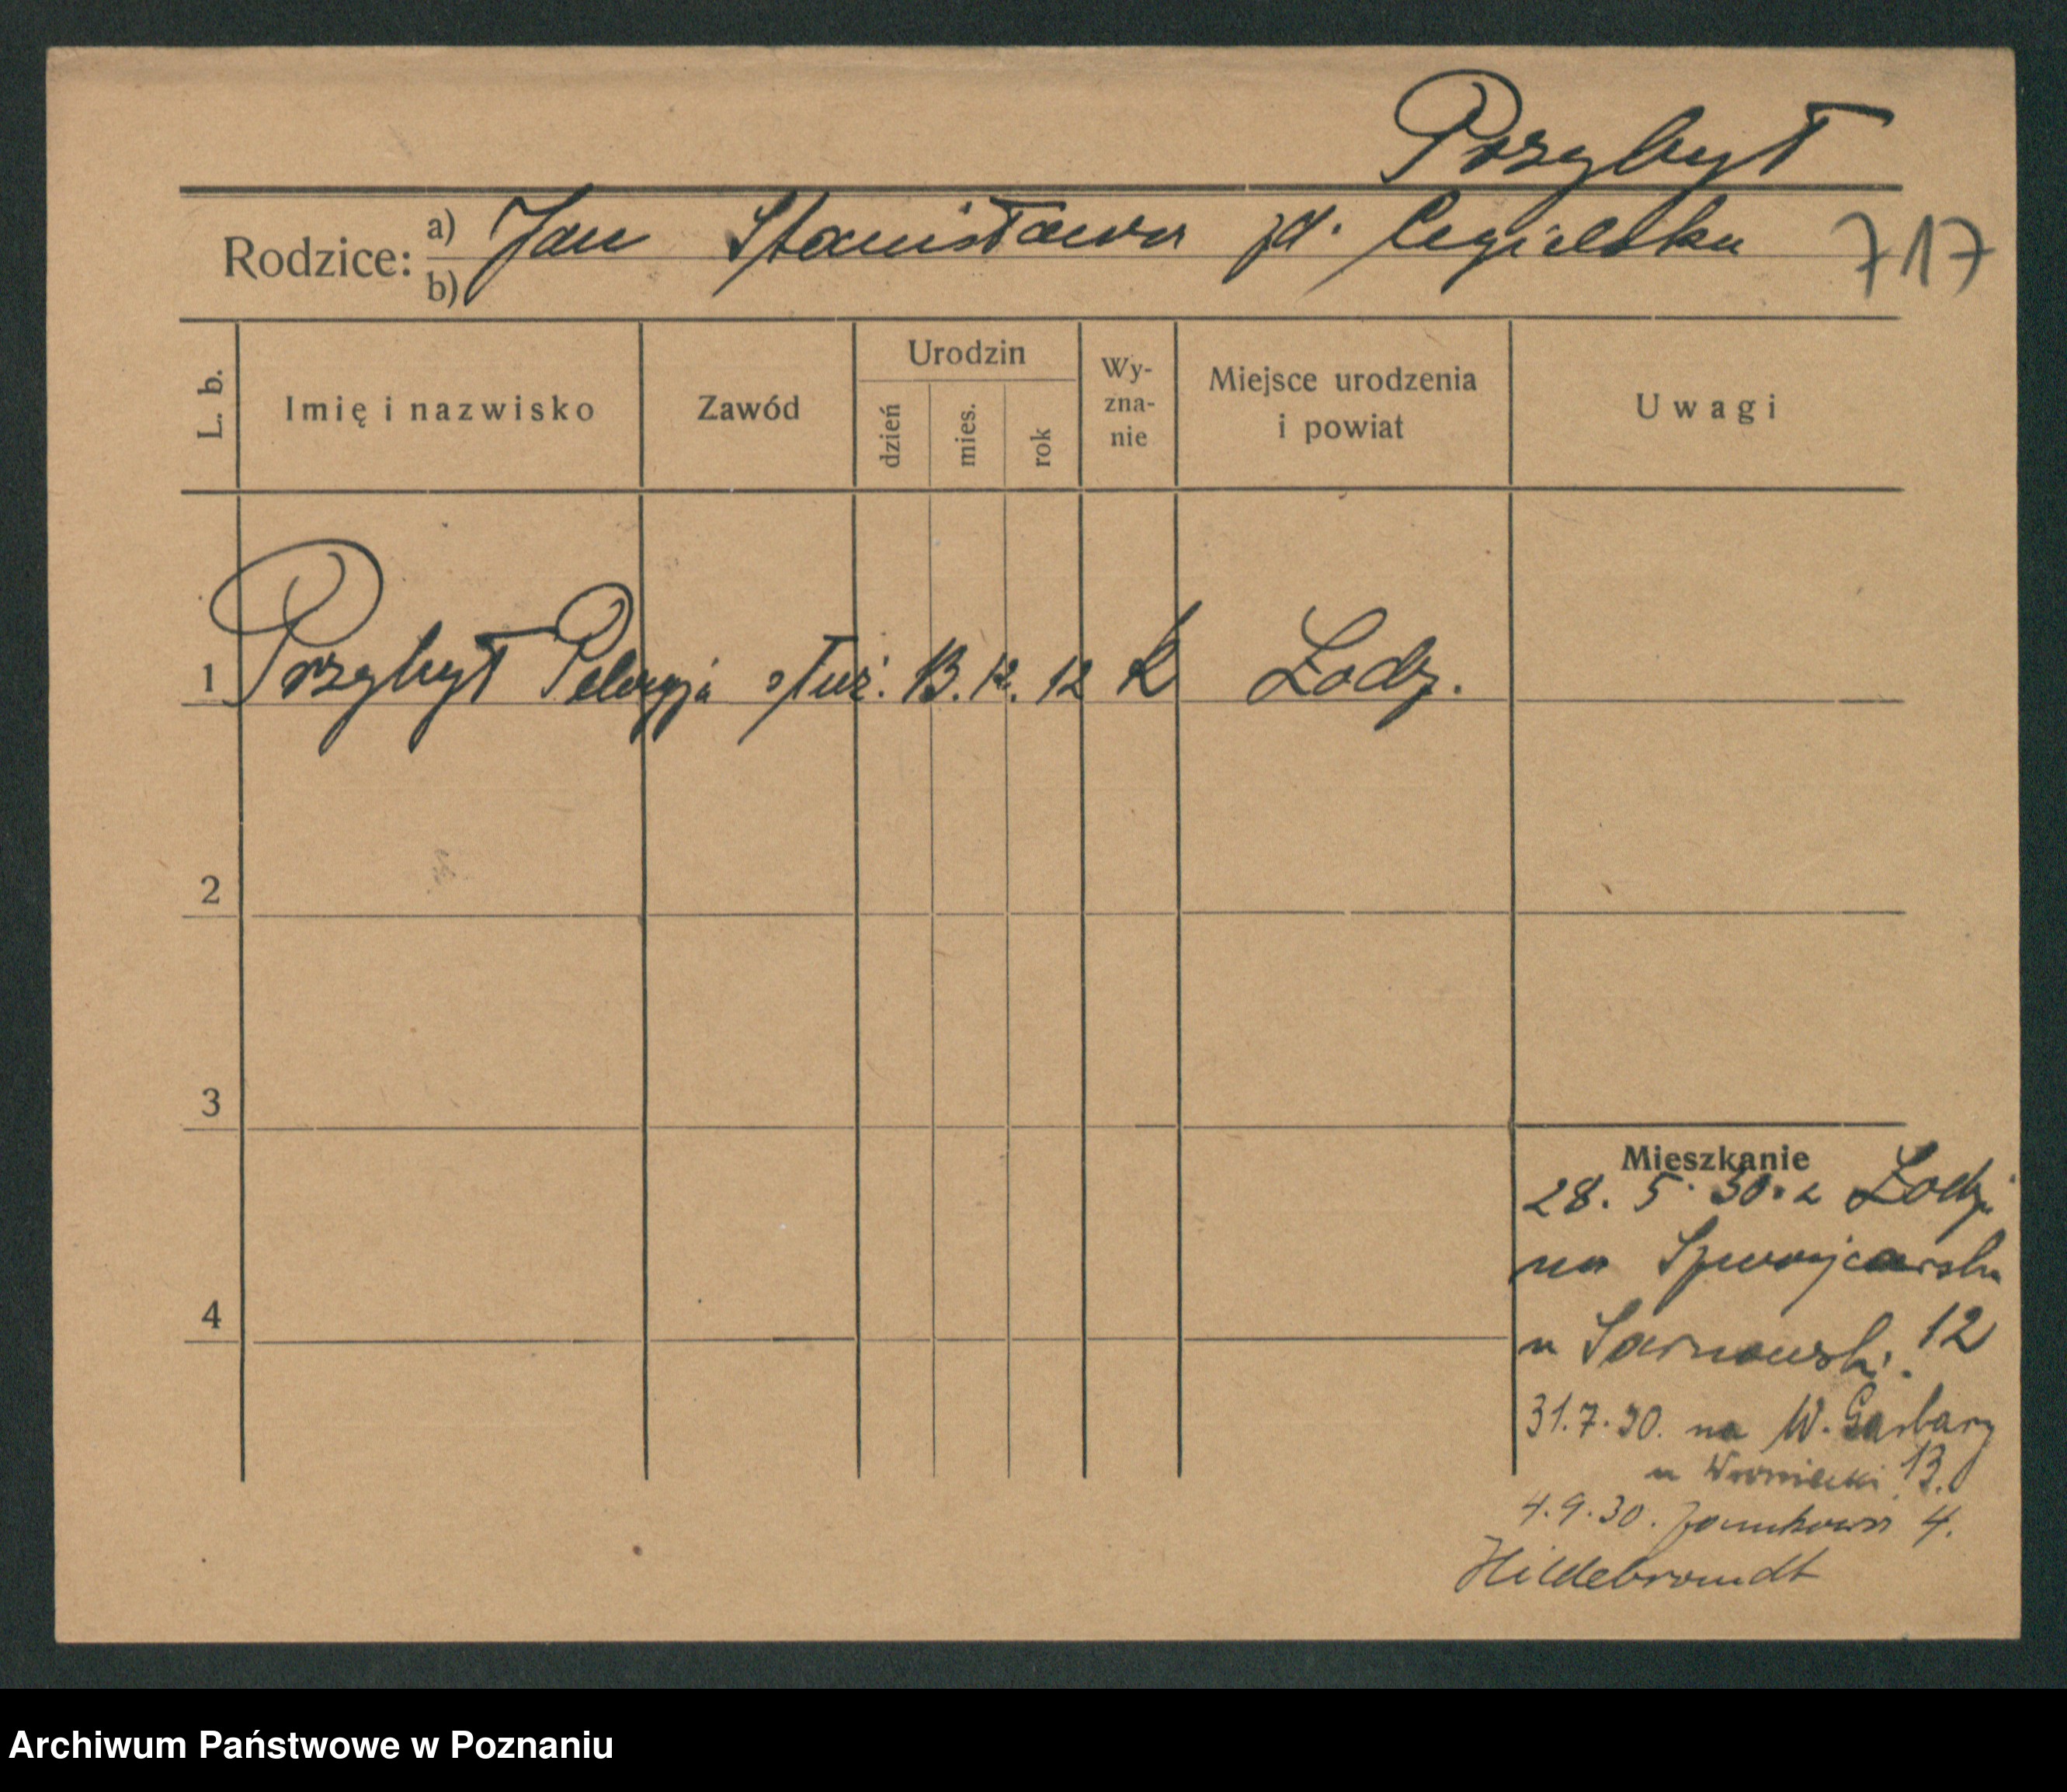 Przybył
Rodzice: a) Jan Stanisława zd. Cegielska 717
b)
L. b. Imię i nazwisko Zawód Urodzin dzień mies. rok Wy-zna-nie Miejsce urodzenia i powiat Uwagi
1 Przybył Pelagja służ. 13. 12. 12 k Łodz.
2
3
4
Mieszkanie
28. 5. 30. z Łodzi
na
u Sarnowski. 12
31.7.30. na W. Garbary
u Wroniecki 13.
4.9.30. 4.
Hildebrandt
Archiwum Państwowe w Poznaniu